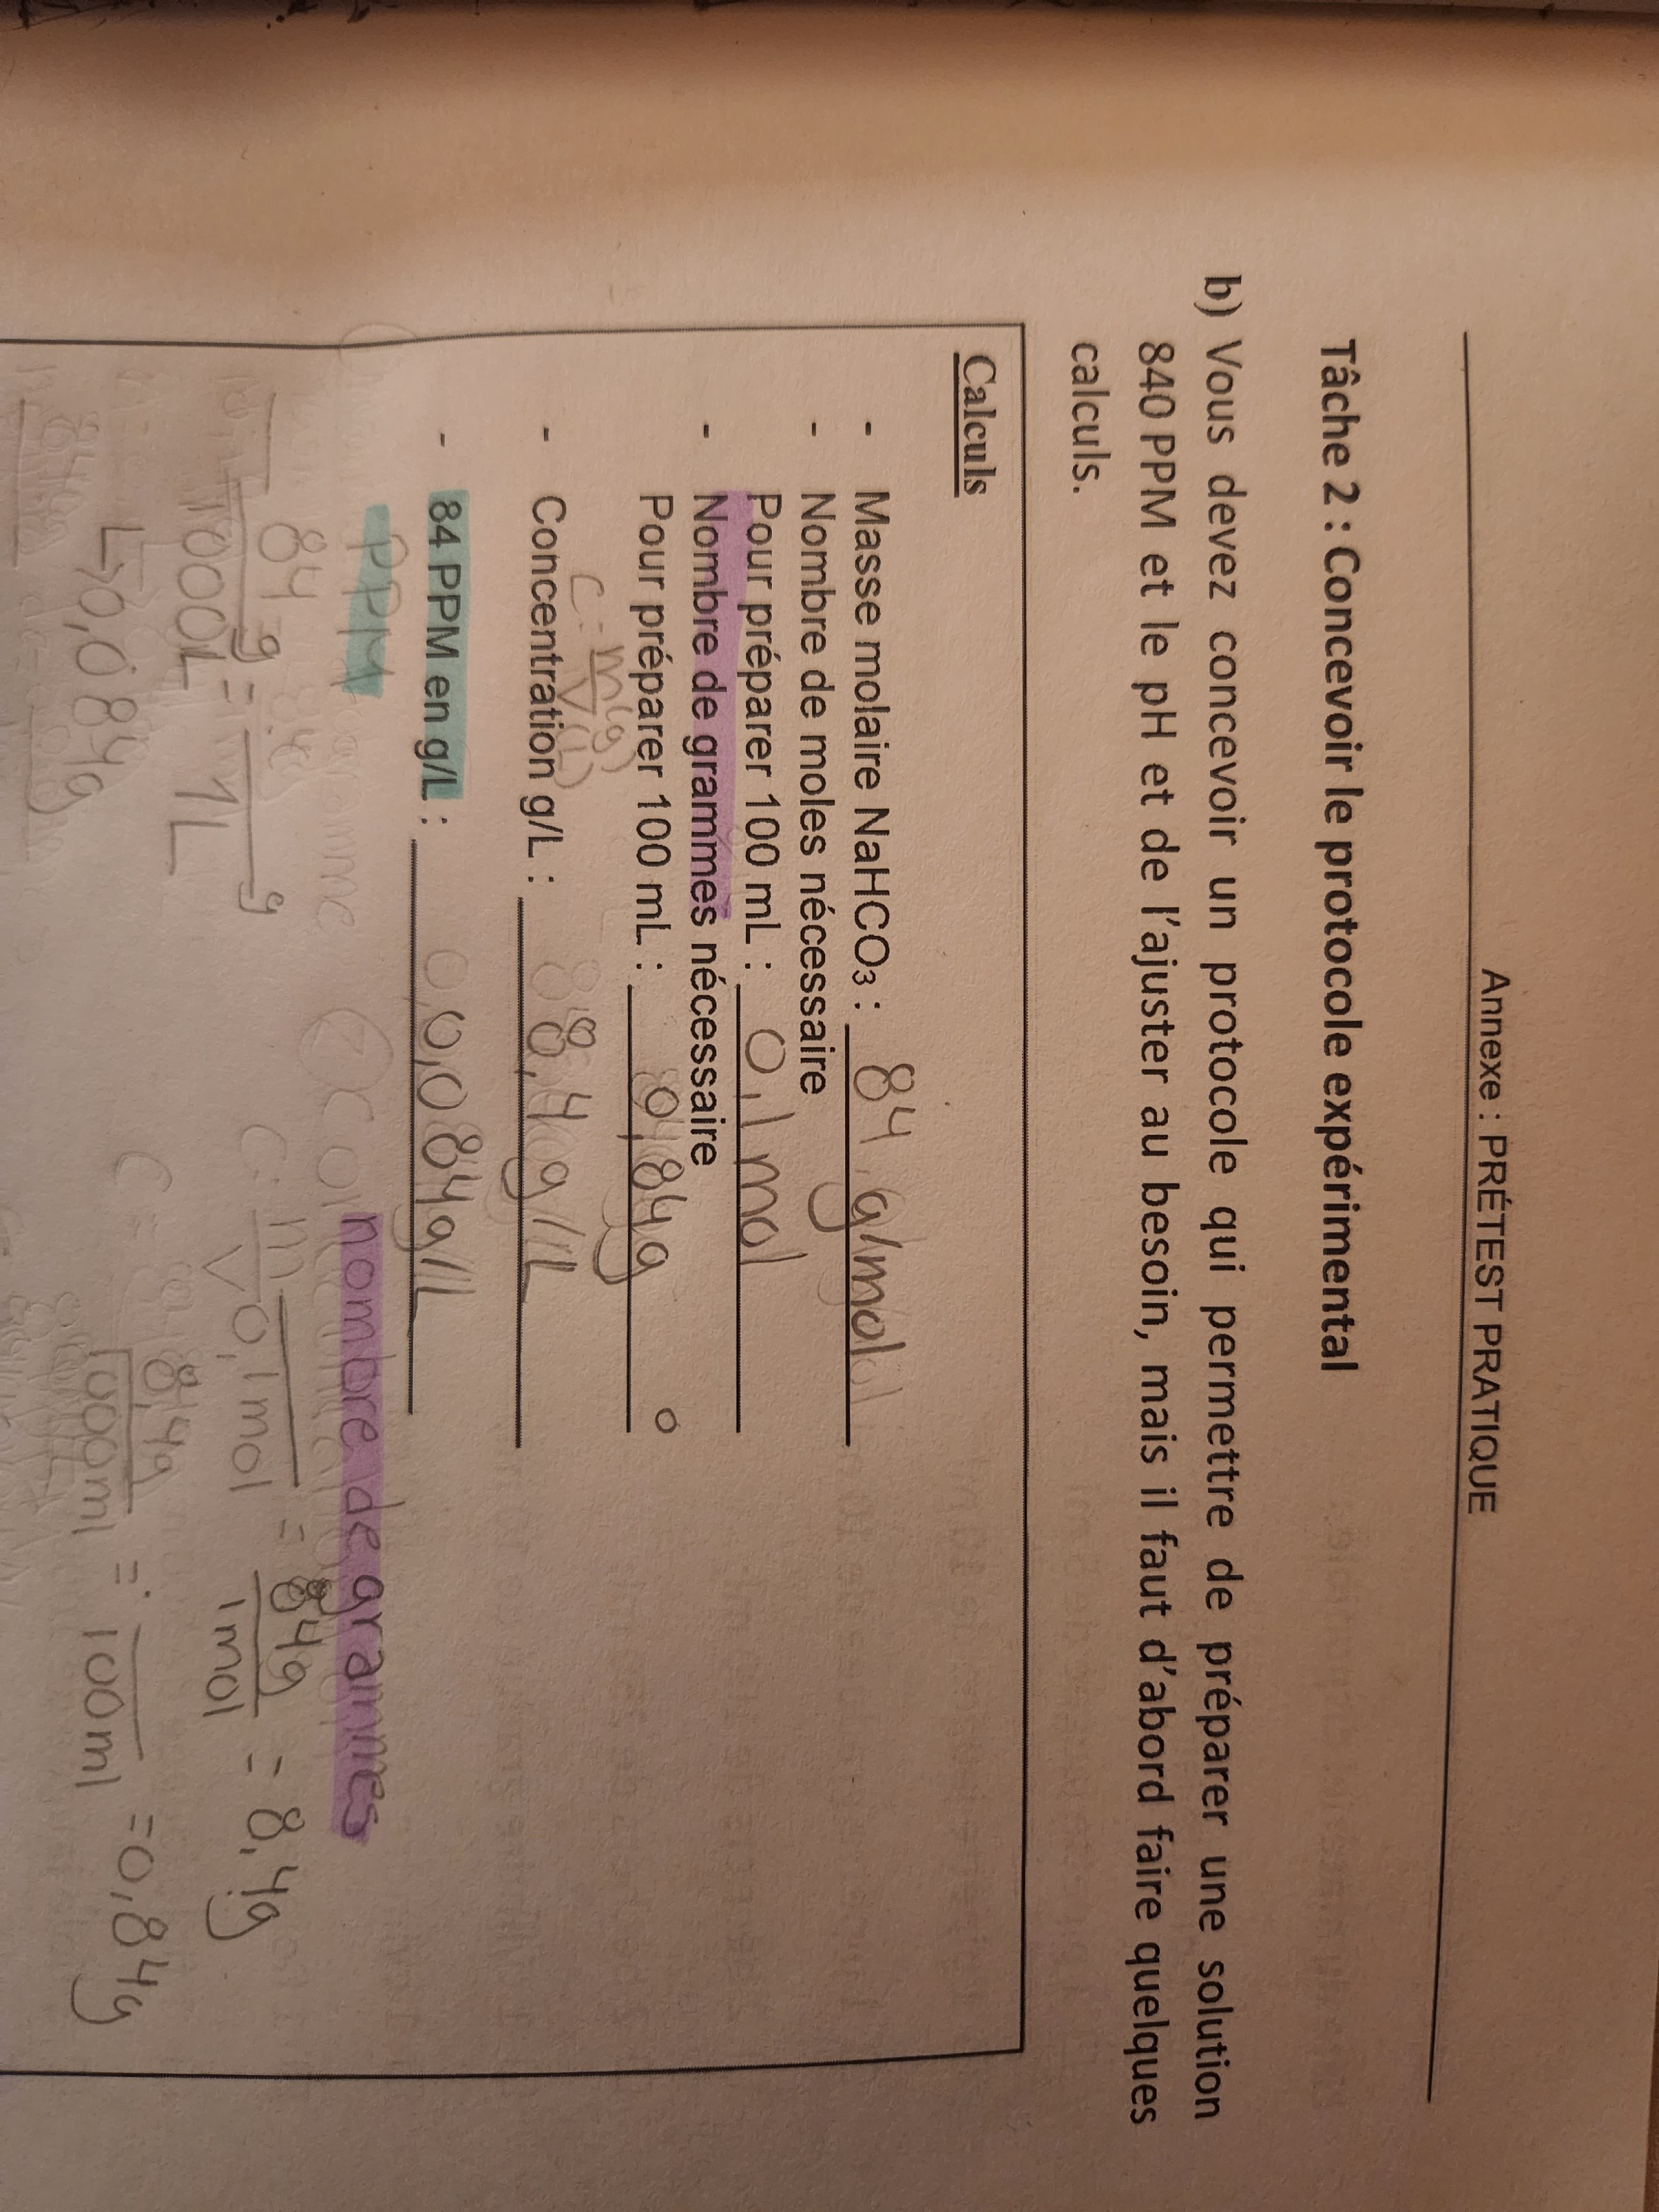 Annexe : PRÉTEST PRATIQUE
Tâche 2 : Concevoir le protocole expérimental
b) Vous devez concevoir un protocole qui permettre de préparer une solution
840 PPM et le pH et de l'ajuster au besoin, mais il faut d'abord faire quelques
calculs.
Calculs
- Masse molaire NaHCO₃ : 84 g/mol
- Nombre de moles nécessaire
Pour préparer 100 mL : 0,1 mol
- Nombre de grammes nécessaire
Pour préparer 100 mL : 0,84g
C = m(g) / V(L)
- Concentration g/L : 8,4 g/L
- 84 PPM en g/L : 0,084g/L
PPM
nombre de grammes
84 g / 1000L = g / 1L
↳ 0,084g
m / 0,1mol = 84g / 1mol = 8,4g
8,4g / 1000ml = / 100ml = 0,84g